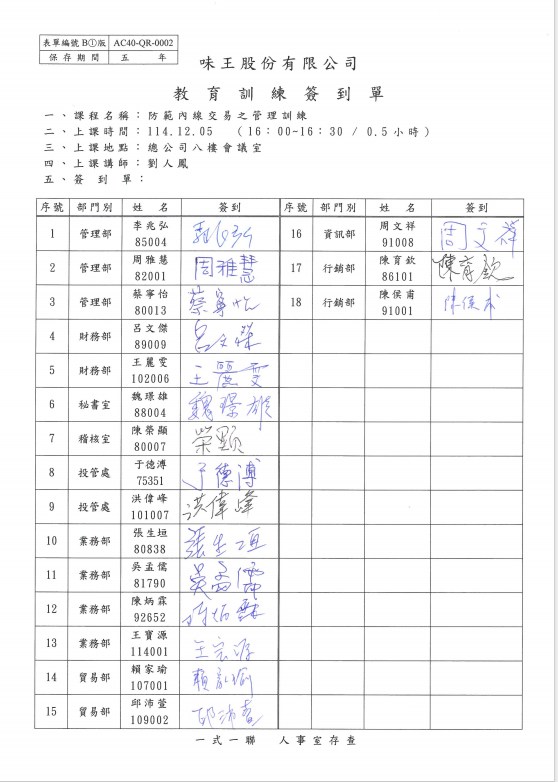 表單編號 B①版 AC40-QR-0002
保存期間 五 年
味王股份有限公司
教育訓練簽到單
一、課程名稱：防範內線交易之管理訓練
二、上課時間：114.12.05 (16：00~16：30 / 0.5小時)
三、上課地點：總公司八樓會議室
四、上課講師：劉人鳳
五、簽到單：
序號 部門別 姓名 簽到 序號 部門別 姓名 簽到
1 管理部 李兆弘 85004
2 管理部 周雅慧 82001 周雅慧
3 管理部 蔡寧怡 80013 蔡寧怡
4 財務部 呂文傑 89009 呂文傑
5 財務部 王麗雯 102006 王麗雯
6 秘書室 魏璟雄 88004 魏璟雄
7 稽核室 陳榮顯 80007 榮顯
8 投管處 于德溥 75351 于德溥
9 投管處 洪偉峰 101007 洪偉峰
10 業務部 張生垣 80838 張生垣
11 業務部 吳孟儒 81790 吳孟儒
12 業務部 陳炳霖 92652 陳炳霖
13 業務部 王寶源 114001
14 貿易部 賴家瑜 107001 賴家瑜
15 貿易部 邱沛萱 109002 邱沛萱
16 資訊部 周文祥 91008 周文祥
17 行銷部 陳育欽 86101 陳育欽
18 行銷部 陳侯甫 91001 陳侯甫
一式一聯 人事室存查